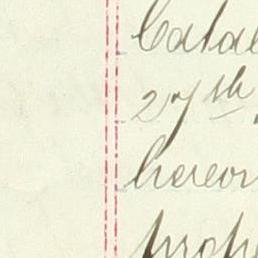 Catal
27th
hereon
prop